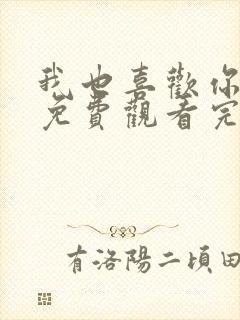 我也喜歡你
免費觀看完
有洛陽二頃田